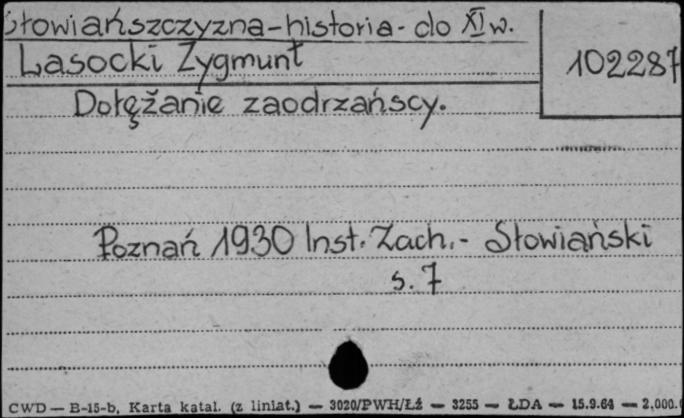 Słowiańszczyzna-historia-do XI w.
Lasocki Zygmunt
102287
Dołężanie zaodrzańscy.
Poznań 1930 Inst. Zach.- Słowiański
s. 7
CWD — B-15-b, Karta katal. (z liniat.) — 3020/PWH/Łź — 3255 — ŁDA — 15.9.64 — 2.000.